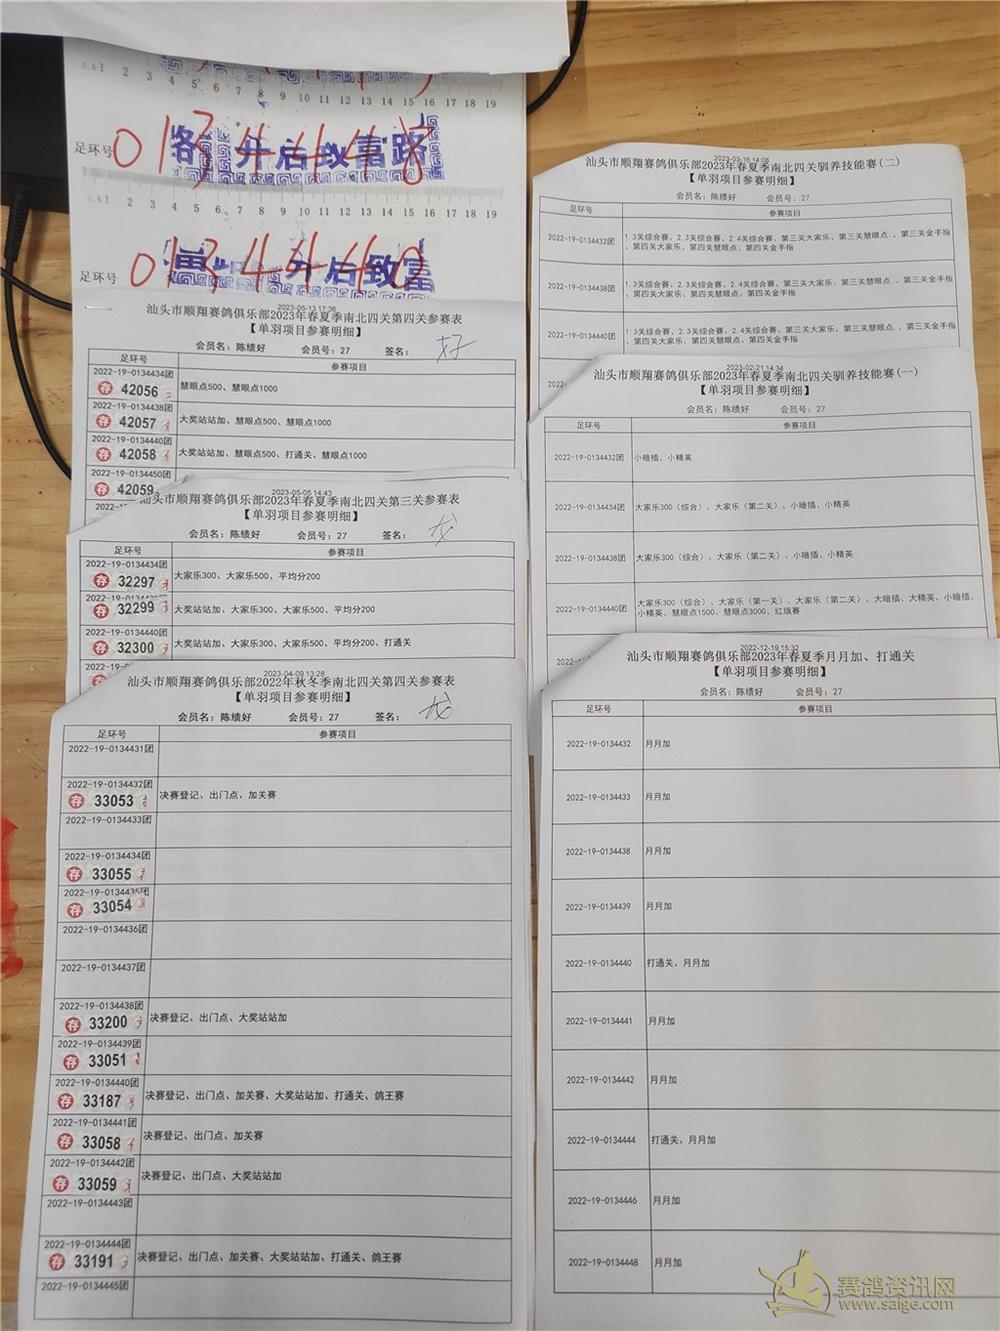 0.1 1 2 3 4 5 6 7 8 9 10 11 12 13 14 15 16 17 18 19
足环号 0134418
路 开后致富路
1 2 3 4 5 6 7 8 9 10 11 12 13 14 15 16 17 18 19
足环号 01344
开后致富
2023-05-13
汕头市顺翔赛鸽俱乐部2023年春夏季南北四关第四关参赛表
【单羽项目参赛明细】
会员名：陈绩好 会员号：27 签名： 好
足环号 参赛项目
2022-19-0134434团
存 42056 慧眼点500、慧眼点1000
2022-19-0134438团
存 42057 大奖站站加、慧眼点500、慧眼点1000
2022-19-0134440团
存 42058 大奖站站加、慧眼点500、打通关、慧眼点1000
2022-19-0134450团
存 42059
2023-05-05 14:43
汕头市顺翔赛鸽俱乐部2023年春夏季南北四关第三关参赛表
【单羽项目参赛明细】
会员名：陈绩好 会员号：27 签名：
足环号 参赛项目
2022-19-0134434团
存 32297 大家乐300、大家乐500、平均分200
存 32299 大奖站站加、大家乐300、大家乐500、平均分200
2022-19-0134440团
存 32300 大奖站站加、大家乐300、大家乐500、平均分200、打通关
2023-04-09 13:28
汕头市顺翔赛鸽俱乐部2022年秋冬季南北四关第四关参赛表
【单羽项目参赛明细】
会员名：陈绩好 会员号：27 签名：
足环号 参赛项目
2022-19-0134431团
2022-19-0134432团
存 33053 决赛登记、出门点、加关赛
2022-19-0134433团
2022-19-0134434团
存 33055
2022-19-0134435团
存 33054
2022-19-0134436团
2022-19-0134437团
2022-19-0134438团
存 33200 决赛登记、出门点、大奖站站加
2022-19-0134439团
存 33051
2022-19-0134440团
存 33187 决赛登记、出门点、加关赛、大奖站站加、打通关、鸽王赛
2022-19-0134441团
存 33058 决赛登记、出门点、加关赛
2022-19-0134442团
存 33059 决赛登记、出门点、大奖站站加
2022-19-0134443团
2022-19-0134444团
存 33191 决赛登记、出门点、加关赛、大奖站站加、打通关、鸽王赛
2022-19-0134445团
2023-03-16 14:08
汕头市顺翔赛鸽俱乐部2023年春夏季南北四关驯养技能赛(二)
【单羽项目参赛明细】
会员名：陈绩好 会员号：27
足环号 参赛项目
2022-19-0134432团 1.3关综合赛、2.3关综合赛、2.4关综合赛、第三关大家乐、第三关慧眼点、第三关金手指
、第四关大家乐、第四关慧眼点、第四关金手指
2022-19-0134438团 1.3关综合赛、2.3关综合赛、2.4关综合赛、第三关大家乐、第三关慧眼点、第三关金手指
、第四关大家乐、第四关慧眼点、第四关金手指
2022-19-0134440团 1.3关综合赛、2.3关综合赛、2.4关综合赛、第三关大家乐、第三关慧眼点、第三关金手指
、第四关大家乐、第四关慧眼点、第四关金手指
2023-02-21 14:34
汕头市顺翔赛鸽俱乐部2023年春夏季南北四关驯养技能赛(一)
【单羽项目参赛明细】
会员名：陈绩好 会员号：27
足环号 参赛项目
2022-19-0134432团 小暗插、小精英
2022-19-0134434团 大家乐300（综合）、大家乐（第二关）、小暗插、小精英
2022-19-0134438团 大家乐300（综合）、大家乐（第二关）、小暗插、小精英
2022-19-0134440团 大家乐300（综合）、大家乐（第一关）、大家乐（第二关）、大暗插、大精英、小暗插、
小精英、慧眼点1500、慧眼点3000、红旗赛
2022-12-19 15:32
汕头市顺翔赛鸽俱乐部2023年春夏季月月加、打通关
【单羽项目参赛明细】
会员名：陈绩好 会员号：27
足环号 参赛项目
2022-19-0134432 月月加
2022-19-0134433 月月加
2022-19-0134438 月月加
2022-19-0134439 月月加
2022-19-0134440 打通关、月月加
2022-19-0134441 月月加
2022-19-0134442 月月加
2022-19-0134444 打通关、月月加
2022-19-0134446 月月加
2022-19-0134448 月月加
赛鸽资讯网
www.saige.com